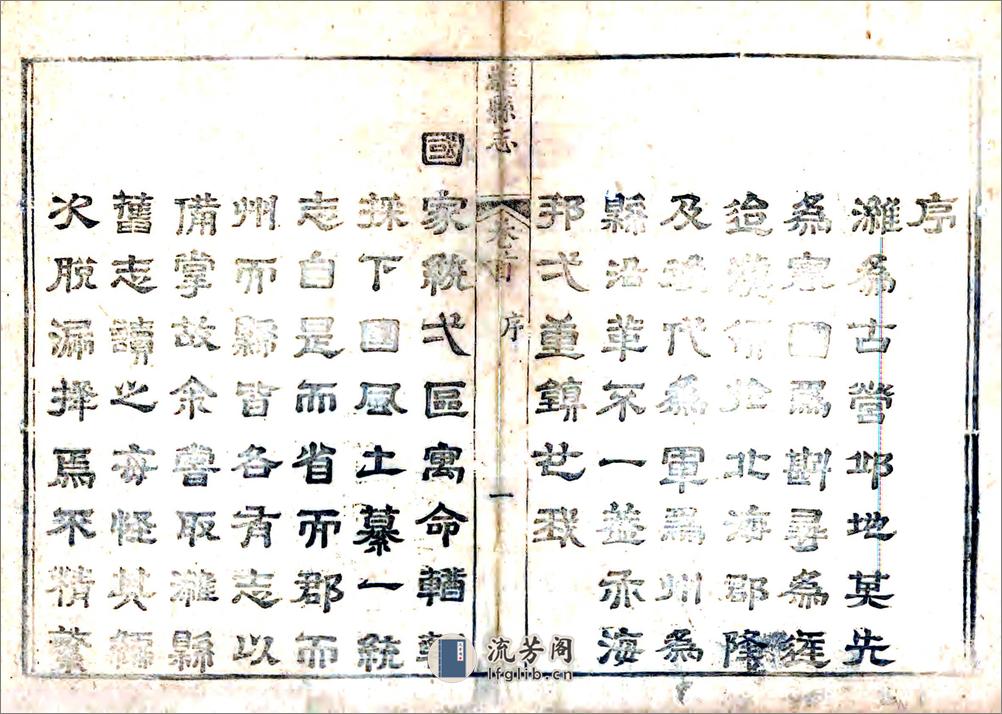 序
濰爲古營邱地其先
爲寒國爲斟尋爲
迨漢於北海郡隆
及代爲軍爲州爲
縣沿革不一葢亦海
邦弌重鎮也我
濰縣志
卷首
序
一
國家統弌區寓命輶軒
採下國風土纂一統
志自是而省而郡而
州而縣皆各有志以
備掌故余嘗取濰縣
舊志讀之每怪其編
次脫漏擇焉不精
流芳阁
lfglib.cn